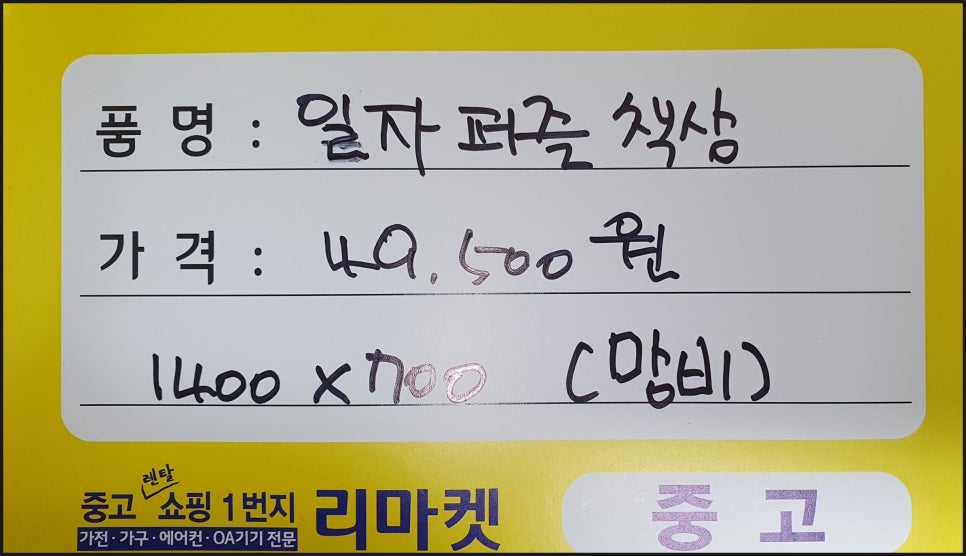 품 명 : 일자 퍼즐 책상
가 격 : 49,500원
1400 x 700 (맘비)
렌탈
중고 쇼핑 1번지
가전·가구·에어컨·OA기기 전문
리마켓
중 고